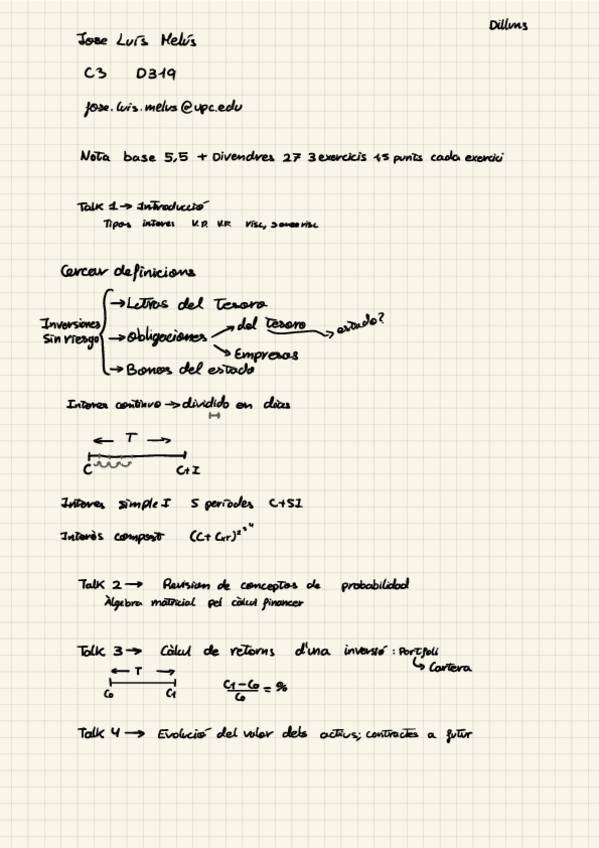 Dilluns
Jose Luís Melús
C3 D319
jose.luis.melus@upc.edu
Nota base 5,5 + Divendres 27 3 exercicis 1'5 punts cada exercici
Talk 1 → Introducció
Tipos interes V.P. V.F. risc, sense risc
Cercar definicions
Inversiones
Sin riesgo
→ Letras del Tesoro
→ Obligaciones → del Tesoro → estado?
→ Empresas
→ Bonos del estado
Interes continuo → dividido en dias
← T →
C C+I
Interes simple I 5 períodes C+5I
Interès compost
Talk 2 → Revision de conceptos de probabilidad
Àlgebra matricial pel càlcul financer
Talk 3 → Càlcul de retorns d'una inversió: Portfoli
↳ Cartera
← T →
C0 C1
C1-C0 / C0 = %
Talk 4 → Evolució del valor dels actius; contractes a futur